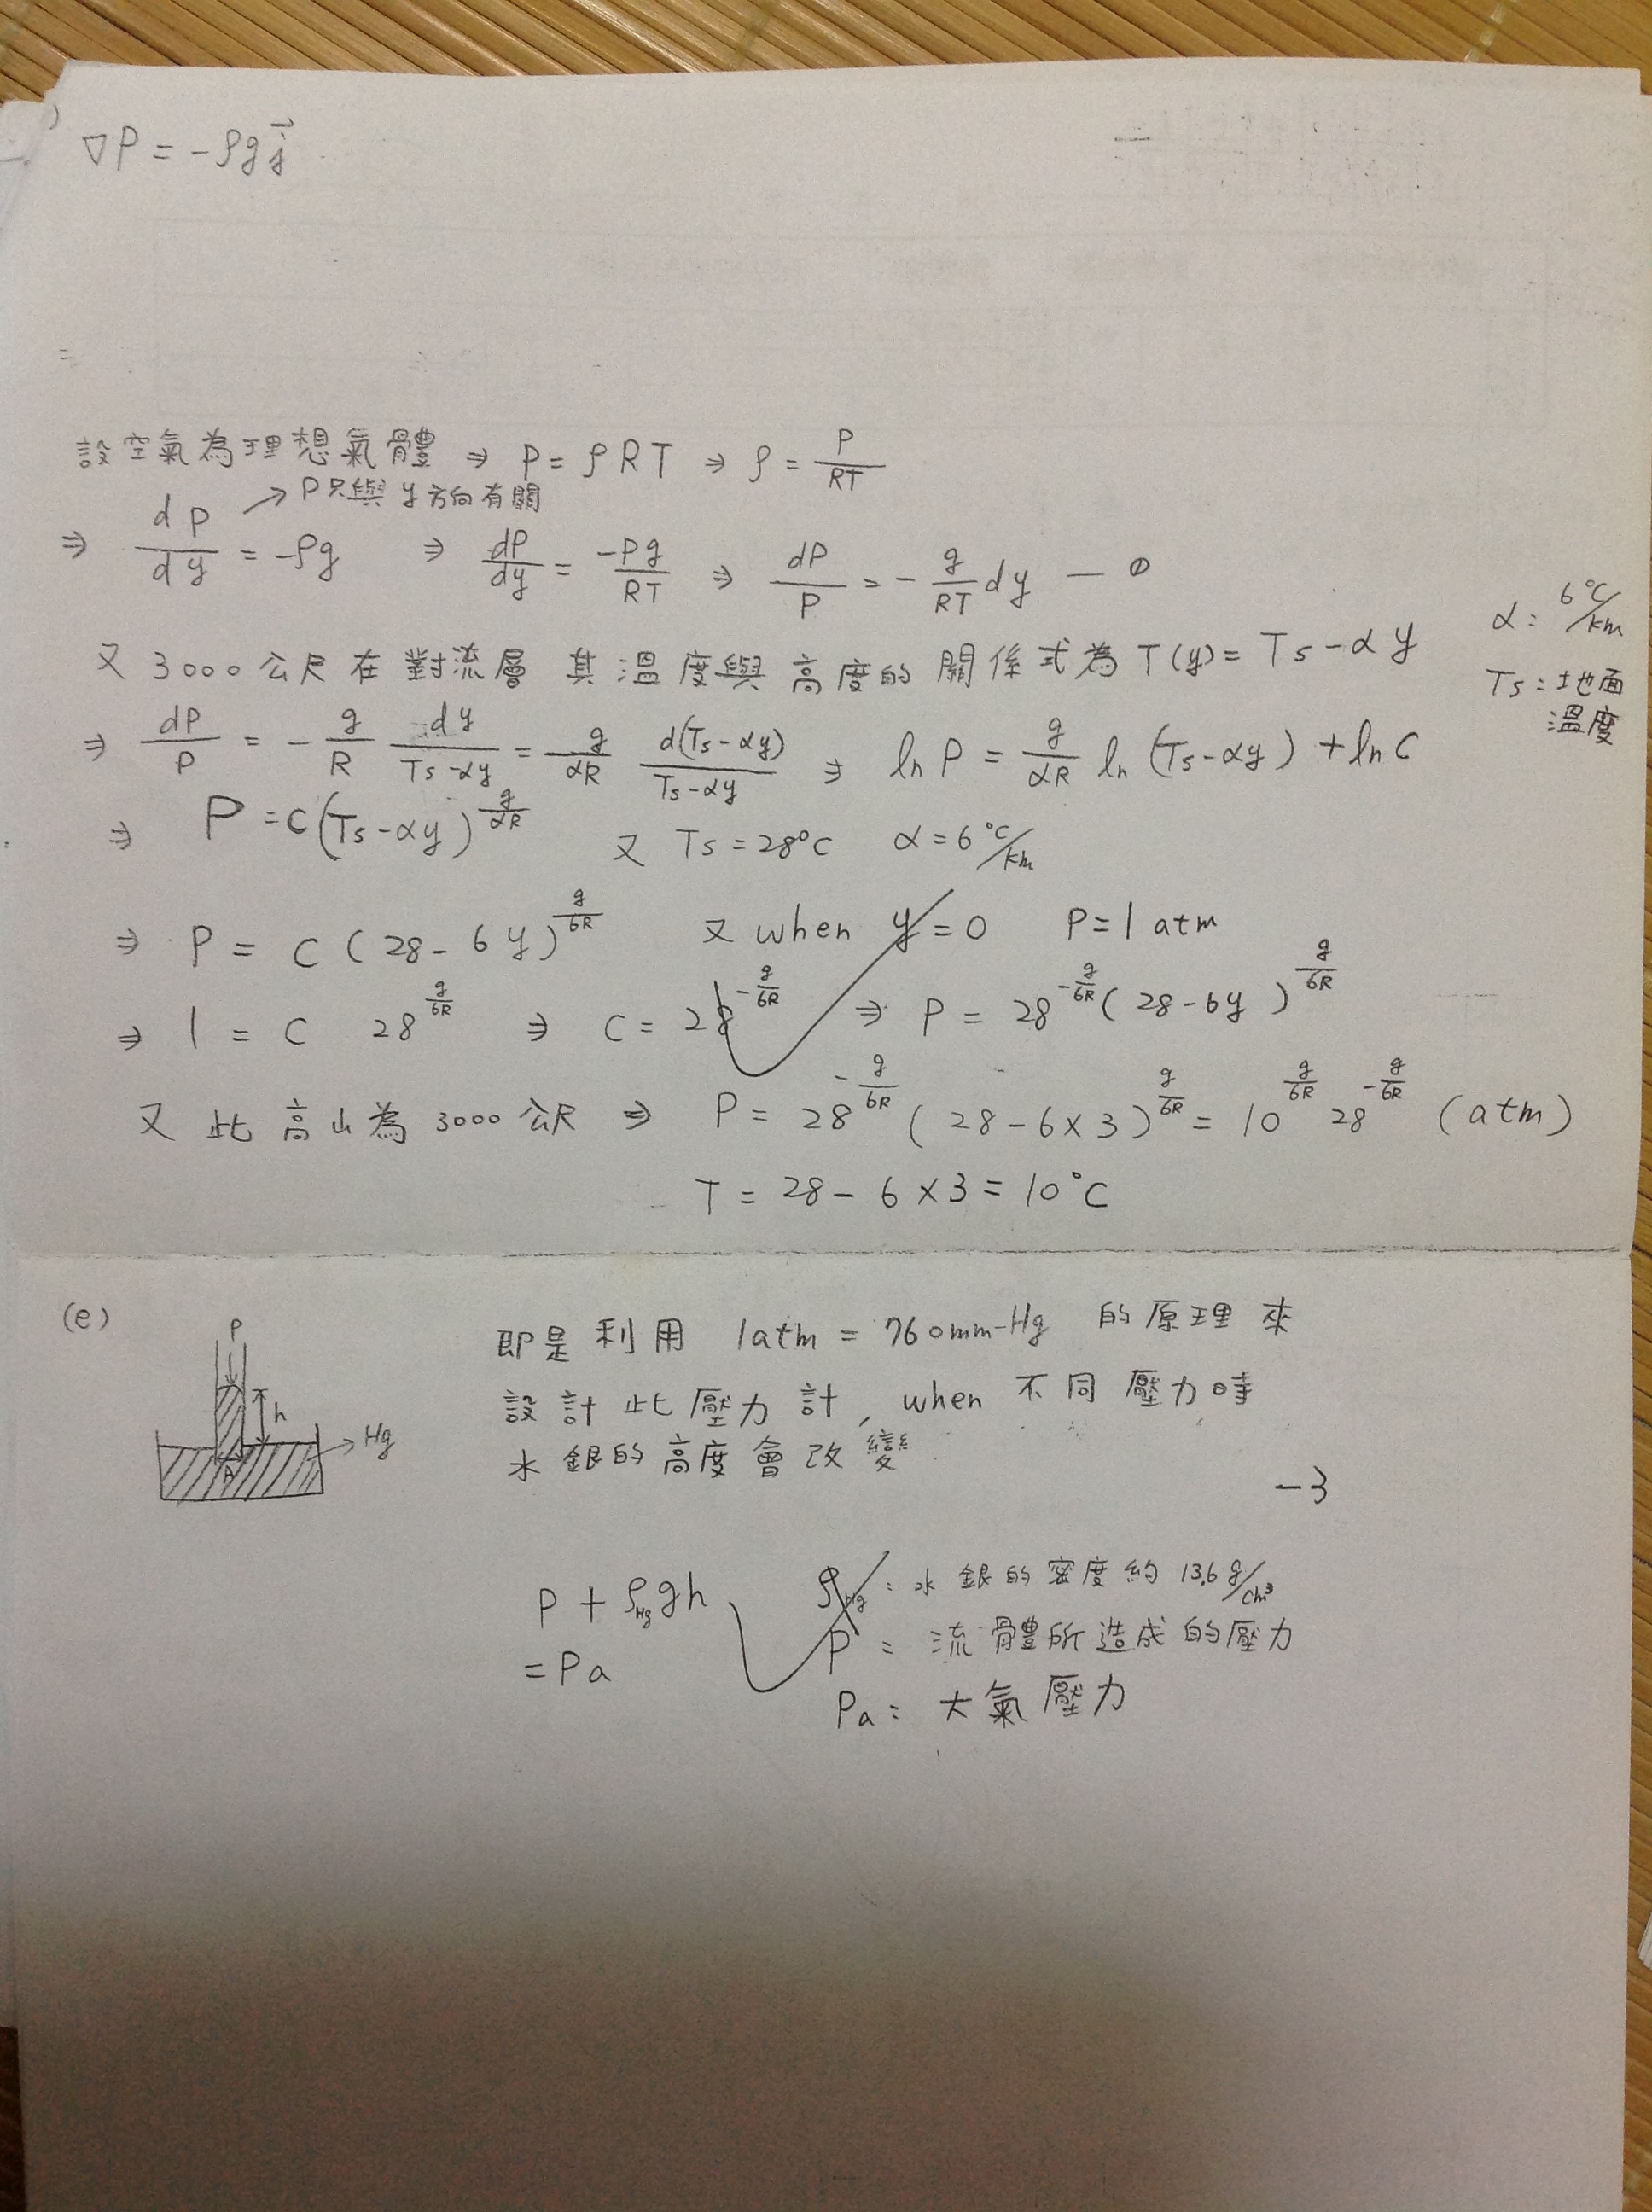 ∇P = -ρg j⃗
設空氣為理想氣體 ⇒ P = ρRT ⇒ ρ = P/RT
⇒ dP/dy = -ρg → P只與y方向有關 ⇒ dP/dy = -Pg/RT ⇒ dP/P = -g/RT dy — ①
又 3000 公尺在對流層 其溫度與高度的關係式為 T(y) = Ts - αy
α: 6℃/km
Ts: 地面
溫度
⇒ dP/P = -g/R dy/(Ts-αy) = g/αR d(Ts-αy)/(Ts-αy) ⇒ ln P = g/αR ln (Ts-αy) + ln C
⇒ P = C(Ts-αy)^(g/αR) 又 Ts = 28℃ α = 6℃/km
⇒ P = C (28-6y)^(g/6R) 又 when y = 0 P = 1 atm
⇒ 1 = C 28^(g/6R) ⇒ C = 28^(-g/6R) ⇒ P = 28^(-g/6R) (28-6y)^(g/6R)
又 此高山為 3000 公尺 ⇒ P = 28^(-g/6R) (28-6×3)^(g/6R) = 10^(g/6R) 28^(-g/6R) (atm)
T = 28 - 6×3 = 10℃
(e)
P
h
Hg
A
即是利用 1atm = 760mm-Hg 的原理來
設計此壓力計, when 不同壓力時
水銀的高度會改變
-3
P + ρHg gh
= Pa
ρHg: 水銀的密度約 13.6 g/cm³
P: 流體所造成的壓力
Pa: 大氣壓力